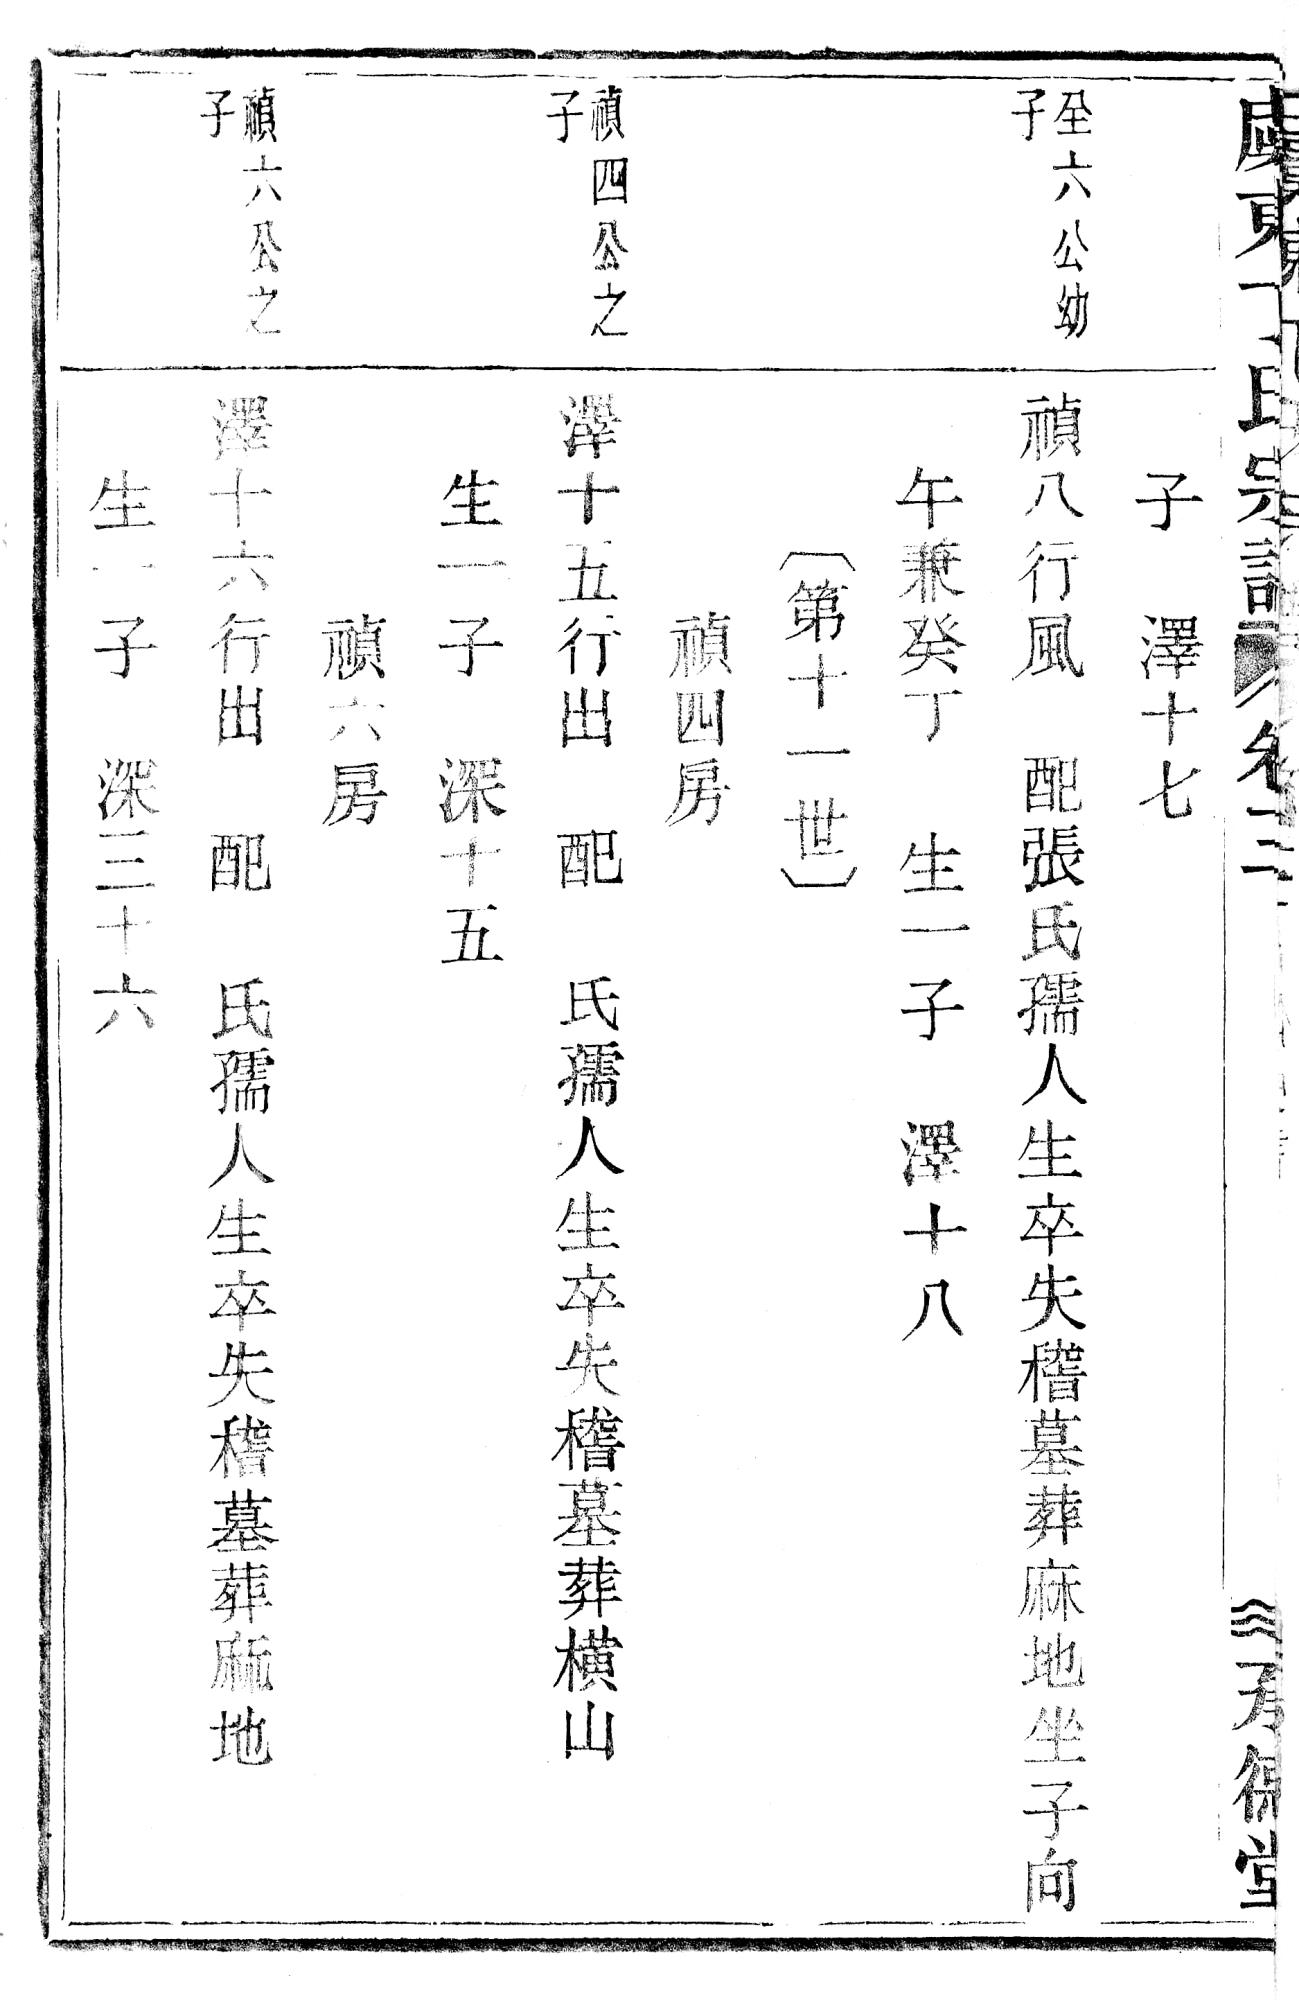 東丁氏宗譜 卷三 德堂
子　澤十七
全六公幼
子
禎八行風　配張氏孺人生卒失稽墓葬麻地坐子向
午兼癸丁　生一子　澤十八
〔第十一世〕
禎四房
禎四公之
子
澤十五行出　配　氏孺人生卒失稽墓葬橫山
生一子　深十五
禎六房
禎六公之
子
澤十六行出　配　氏孺人生卒失稽墓葬麻地
生一子　深三十六